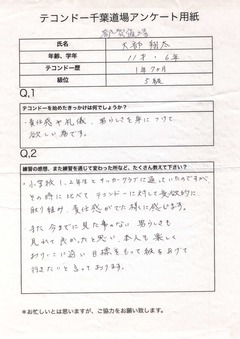 テコンドー千葉道場アンケート用紙
都賀道場
氏名
大都 翔太
年齢、学年
11才・6年
テコンドー歴
1年7ヶ月
級位
5級
Q,1
テコンドーを始めたきっかけは何でしょうか?
・責任感や礼儀、男らしさを身につけて
欲しい為です。
Q,2
練習の感想、また練習を通じて変わった所など、たくさん教えて下さい?
・小学校1、2年生とサッカークラブに通っていたのですが
その時に比べてテコンドーに対して意欲的に
取り組み、責任感がでた様に感じます。
また今までに見た事のない男らしさも
見れて良かったと思い、本人も楽しく
おけいこに通い目標をもって級をあげて
行きたいと言っております。
*お忙しいとは思いますが、ご協力をお願い致します。